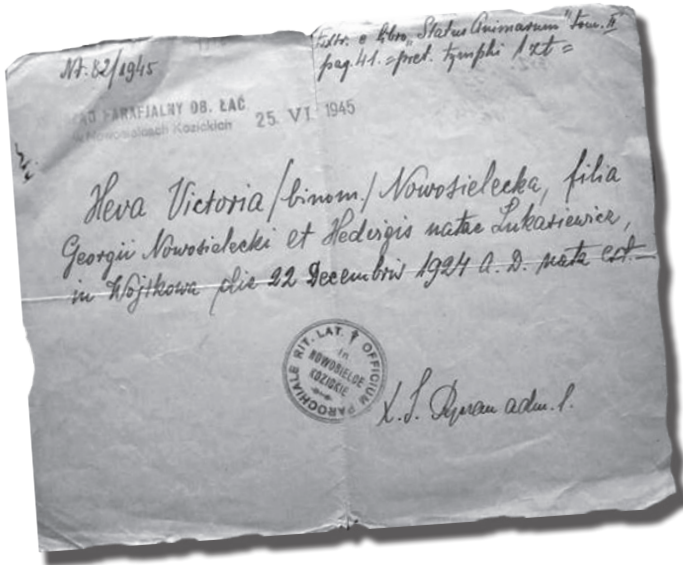 Nr. 82/1945
Extr. e libro "Status Animarum" tom. II
pag. 41. = pret. tymphi 1 zł =
PARAFJALNY OB. ŁAC.
w Nowosielcach Kozickich
25. VI 1945
Heva Victoria /binom./ Nowosielecka, filia
Georgii Nowosielecki et Hedvigis natae Łukasiewicz,
in Wojtkowa die 22 Decembris 1924 A. D. nata est.
OFFICIUM PAROCHIALE RIT. LAT.
in
NOWOSIELCE
KOZICKIE
X. S. adm. p.